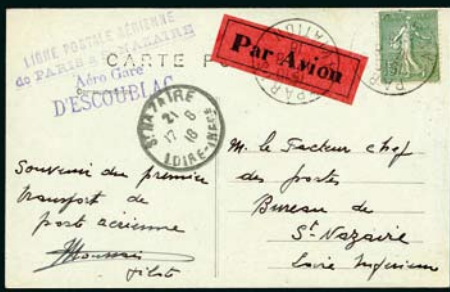 LIGNE POSTALE AÉRIENNE
de PARIS à St NAZAIRE
Aéro Gare
D'ESCOUBLAC
CARTE PO
Par Avion
PARIS
St NAZAIRE
21
17 8
18
LOIRE-INFRE
Souvenir du premier
transport de
poste aérienne
pilote
M. le Facteur chef
des postes
Bureau de
St Nazaire
Loire Inférieure